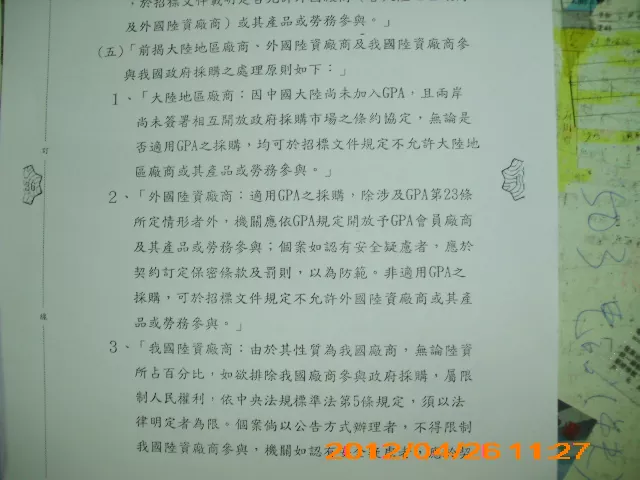 及外國陸資廠商）或其產品或勞務參與。」
(五)「前揭大陸地區廠商、外國陸資廠商及我國陸資廠商參
與我國政府採購之處理原則如下：」
1、「大陸地區廠商：因中國大陸尚未加入GPA，且兩岸
尚未簽署相互開放政府採購市場之條約協定，無論是
否適用GPA之採購，均可於招標文件規定不允許大陸地
區廠商或其產品或勞務參與。」
2、「外國陸資廠商：適用GPA之採購，除涉及GPA第23條
所定情形者外，機關應依GPA規定開放予GPA會員廠商
及其產品或勞務參與；個案如認有安全疑慮者，應於
契約訂定保密條款及罰則，以為防範。非適用GPA之
採購，可於招標文件規定不允許外國陸資廠商或其產
品或勞務參與。」
3、「我國陸資廠商：由於其性質為我國廠商，無論陸資
所占百分比，如欲排除我國廠商參與政府採購，屬限
制人民權利，依中央法規標準法第5條規定，須以法
律明定者為限。個案倘以公告方式辦理者，不得限制
我國陸資廠商參與，機關如認有安全疑慮者，應於契
訂
線
2012/04/26 11:27